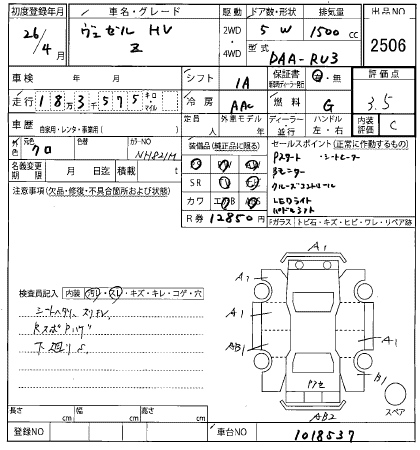 初度登録年月 車名・グレード 駆動 ドア数・形状 排気量 出品NO
26/4月 ヴェゼル HV Z 2WD・4WD 5 W 1500cc 2506
型式 DAA-RU3
車検 年 月 シフト IA 保証書 有・無 評価点 3.5
走行 183575 キロ・マイル 冷房 AAC 燃料 G
車歴 自家用・レンタ・事業用( ) 定員 人 外車モデル ディーラー・並行 ハンドル 左・右 内装 C
元色 クロ 色替 カラーNO NH821M
名義変更期限 月 日迄 積載 t
装備品(純正品に限る) セールスポイント(正常に作動するもの)
SR
カワ エアB ABS
R券 12850円
Pスタート ・シートヒーター
クルーズコントロール
LEDライト
注意事項(欠品・修復・不具合箇所および状態)
Fガラス トビ石・キズ・ヒビ・ワレ・リペア跡
検査員記入 内装 汚レ・スレ・キズ・キレ・コゲ・穴
下廻りS
A1
A1
A1
AB1
A1
B1
AB2
スペア
長さ cm 幅 cm 高さ cm
登録NO 車台NO 1018537